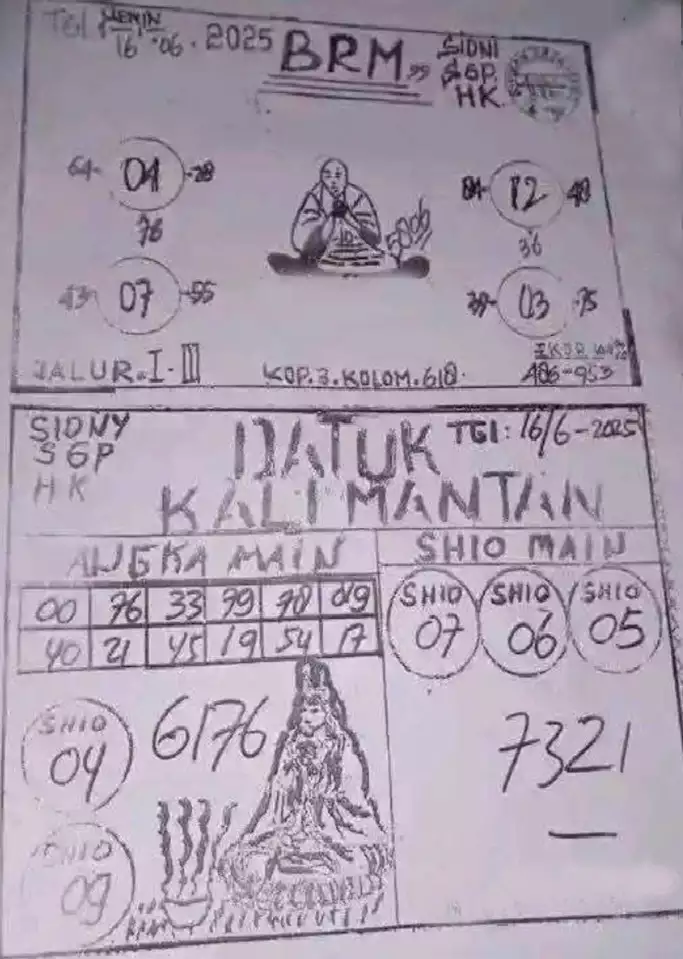 TGL SENIN
16 - 06 - 2025
BRM
SIDNI
SGP.
HK.
64- 01 -28
76
43- 07 -55
84- 12 -48
36
03 -75
JALUR. I - III
KOP. 3. KOLOM. 618.
486-953
SIDNY
SGP
HK
DATUK
KALIMANTAN
TGl: 16/6-2025
ANGKA MAIN
00 76 33 99 78
40 21 45 19 54 17
SHIO MAIN
SHIO 07
SHIO 06
SHIO 05
SHIO
04
6176
7321
SHIO
09